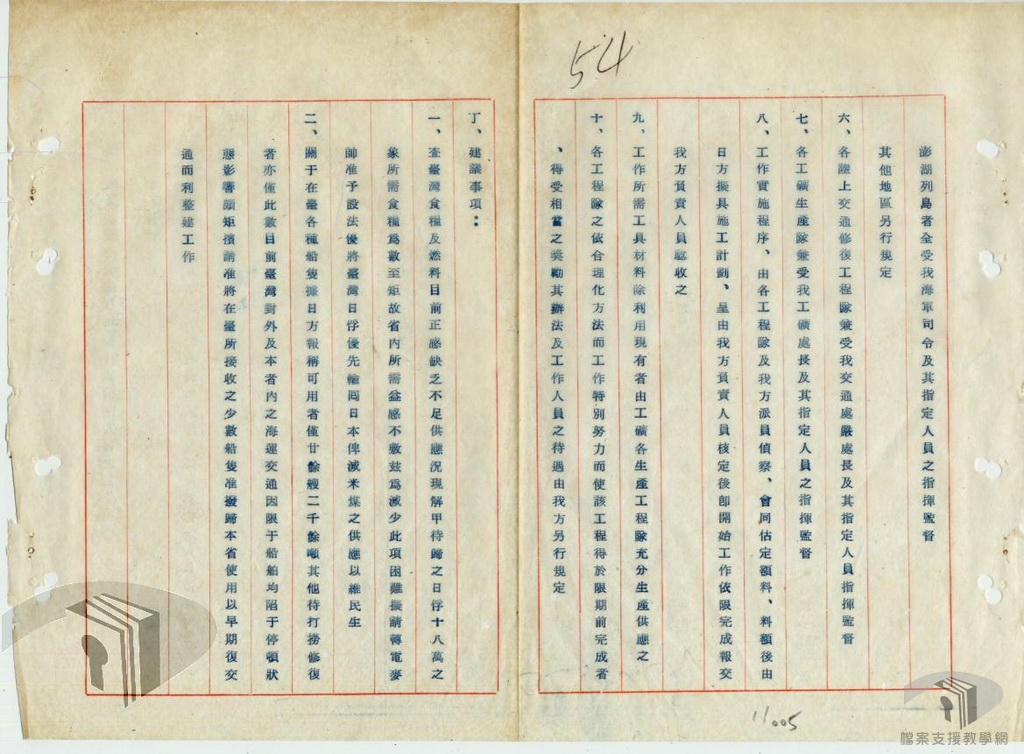 54
澎湖列島者全受我海軍司令及其指定人員之指揮監督
其他地區另行規定
六、各陸上交通修復工程隊兼受我交通處嚴處長及其指定人員指揮監督
七、各工礦生產隊兼受我工礦處長及其指定人員之指揮監督
八、工作實施程序、由各工程隊及我方派員偵察、會同估定額料、料額後由
日方擬具施工計劃、呈由我方負責人員核定後即開始工作依限完成報交
我方負責人員驗收之
九、工作所需工具材料除利用現有者由工礦各生產工程隊充分生產供應之
十、各工程隊之依合理化方法而工作特別努力而使該工程得於限期前完成者
、得受相當之獎勵其辦法及工作人員之待遇由我方另行規定
丁、建議事項：
一、查臺灣食糧及燃料目前正感缺乏不足供應況現解甲待歸之日俘十八萬之
象所需食糧為數至矩故省內所需益感不敷茲為減少此項困難擬請轉電麥
帥准予設法優將臺灣日俘優先輸囘日本俾減米煤之供應以維民生
二、關于在臺各種船隻據日方報稱可用者僅廿餘艘二千餘噸其他待打撈修復
者亦僅此數目前臺灣對外及本省內之海運交通因限于船舶均陷于停頓狀
態影響頗矩擬請准將在臺所接收之少數船隻准撥歸本省使用以早期復交
通而利整建工作
11005
檔案支援教學網